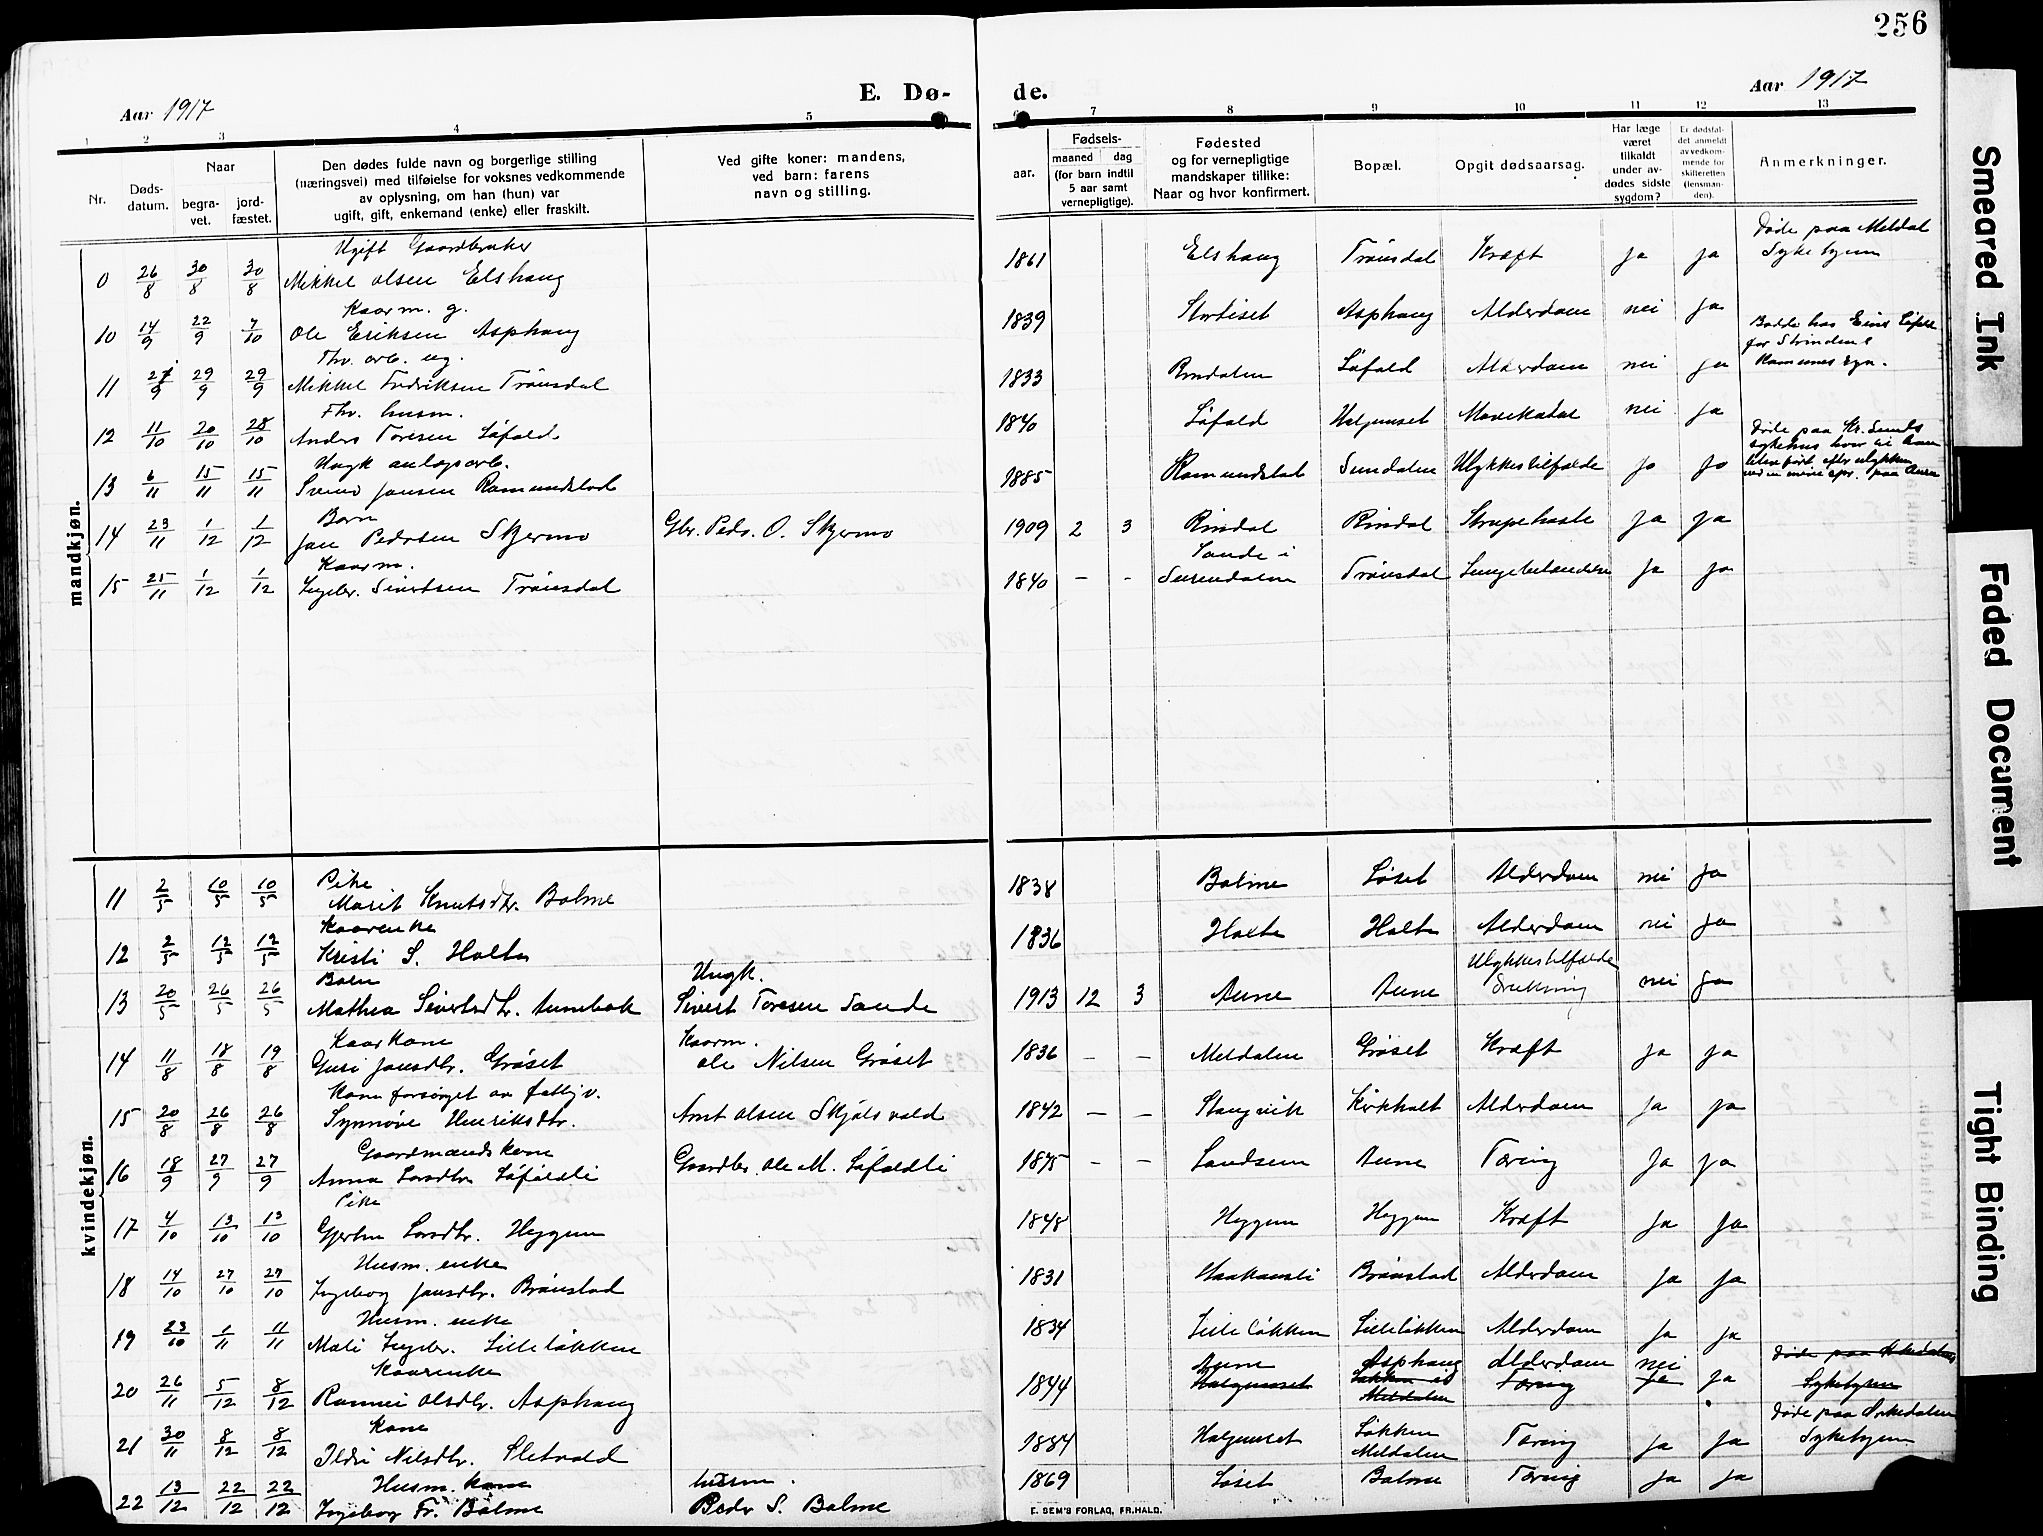 256
Aar 1917
E. Dø-
de.
Aar 1917
1 2 3 4 5 6 7 8 9 10 11 12 13
Nr.
Døds-
datum.
Naar
begra-
vet.
jord-
fæstet.
Den dødes fulde navn og borgerlige stilling
(næringsvei) med tilføielse for voksnes vedkommende
av oplysning, om han (hun) var
ugift, gift, enkemand (enke) eller fraskilt.
Ved gifte koner: mandens,
ved barn: farens
navn og stilling.
aar.
Fødsels-
maaned dag
(for barn indtil
5 aar samt
vernepligtige).
Fødested
og for vernepligtige
mandskaper tillike:
Naar og hvor konfirmert.
Bopæl.
Opgit dødsaarsag.
Har læge
været
tilkaldt
under av-
dødes sidste
sygdom?
Er dødsfal-
det anmeldt
av vedkom-
mende for
skifteretten
(lensman-
den).
Anmerkninger.
mandkjøn.
Ugift Gaardbruker
0 26/8 30/8 30/8 Mikkel Olsen Elshaug 1861 Elshaug Trønsdal Kræft ja ja Døde paa Meldal
Sykehjem
Kaarm. g.
10 14/9 22/9 7/10 Ole Eriksen Asphaug 1839 Stortiset Asphaug Alderdom nei ja
Fhv. arb. ug.
11 27/9 29/9 29/9 Mikkel Fredriksen Trønsdal 1833 Rindalen Løfald Alderdom nei ja
Fhv. husm.
12 11/10 20/10 28/10 Anders Toresen Løfald 1840 Løfald Halgunset nei ja
Ungk anlegsarb.
13 6/11 15/11 15/11 Svend Jonsen Romundstad 1885 Romundstad Sundalen Ulykkestilfælde ja ja Døde paa Kr. Sunds
Barn
14 23/11 1/12 1/12 Jon Pedersen Skjermo Gbr. Peder O. Skjermo 1909 2 3 Rindal Rindal Strupehoste ja ja
Kaarm. Sande i
15 25/11 1/12 1/12 Ingebr. Sivertsen Trønsdal 1840 - - Surendalen Trønsdal Lungebetændelse ja ja
kvindekjøn.
Pike
11 2/5 10/5 10/5 Marit Knutsdtr. Bolme 1838 Bolme Løset Alderdom nei ja
Kaarenke
12 2/5 12/5 12/5 Kristi S. Holte 1836 Holte Holte Alderdom nei ja
Barn Ungk. Ulykkestilfælde
13 20/5 26/5 26/5 Mathea Sivertsdtr. Aunebak Sivert Toresen Sande 1913 12 3 Aune Aune Drukning nei Ja
Kaarkone Kaarm.
14 11/8 18/8 19/8 Guri Jonsdtr. Grøset Ole Nilsen Grøset 1836 - - Meldalen Grøset Kræft ja ja
Kone forsørget av fattigv.
15 20/8 26/8 26/8 Synnøve Henriksdtr. Arnt Olsen Skjølsvold 1842 - - Stangvik Kirkholt Alderdom ja ja
Gaardmandskone
16 18/9 27/9 27/9 Anna Larsdtr. Løfaldli Gaardbr. Ole M. Løfaldli 1875 - - Landsem Aune Tæring ja ja
Pike
17 4/10 13/10 13/10 Gjertru Larsdtr. Heggem 1848 Heggem Heggem Kræft ja ja
Husm. enke
18 14/10 27/10 27/10 Ingebog Jonsdtr. Brønstad 1831 Haakansli Brønstad Alderdom ja ja
Husm. enke
19 23/10 1/11 11/11 Mali Ingebr. Lilleløkken 1834 Lilleløkken Lilleløkken Alderdom ja ja
Kaarenke Aune Asphaug Alderdom nei Døde paa Orkedalens
20 26/11 5/12 8/12 Rannei Olsdtr. Asphaug 1844 Halgunset Løkken i Meldalen Tæring ja ja Sykehjem
Kone Løkken Døde paa Orkedalen
21 30/11 8/12 8/12 Ildri Nilsdtr. Sletvold 1884 Halgunset Meldalen Tæring ja ja Sykehjem
Husm. kone husm.
22 13/12 22/12 22/12 Ingebog Fr. Bolme Peder S. Bolme 1869 Løset Bolme Tæring ja ja
E. SEM'S FORLAG, FR.HALD.
Smeared Ink
Faded Document
Tight Binding